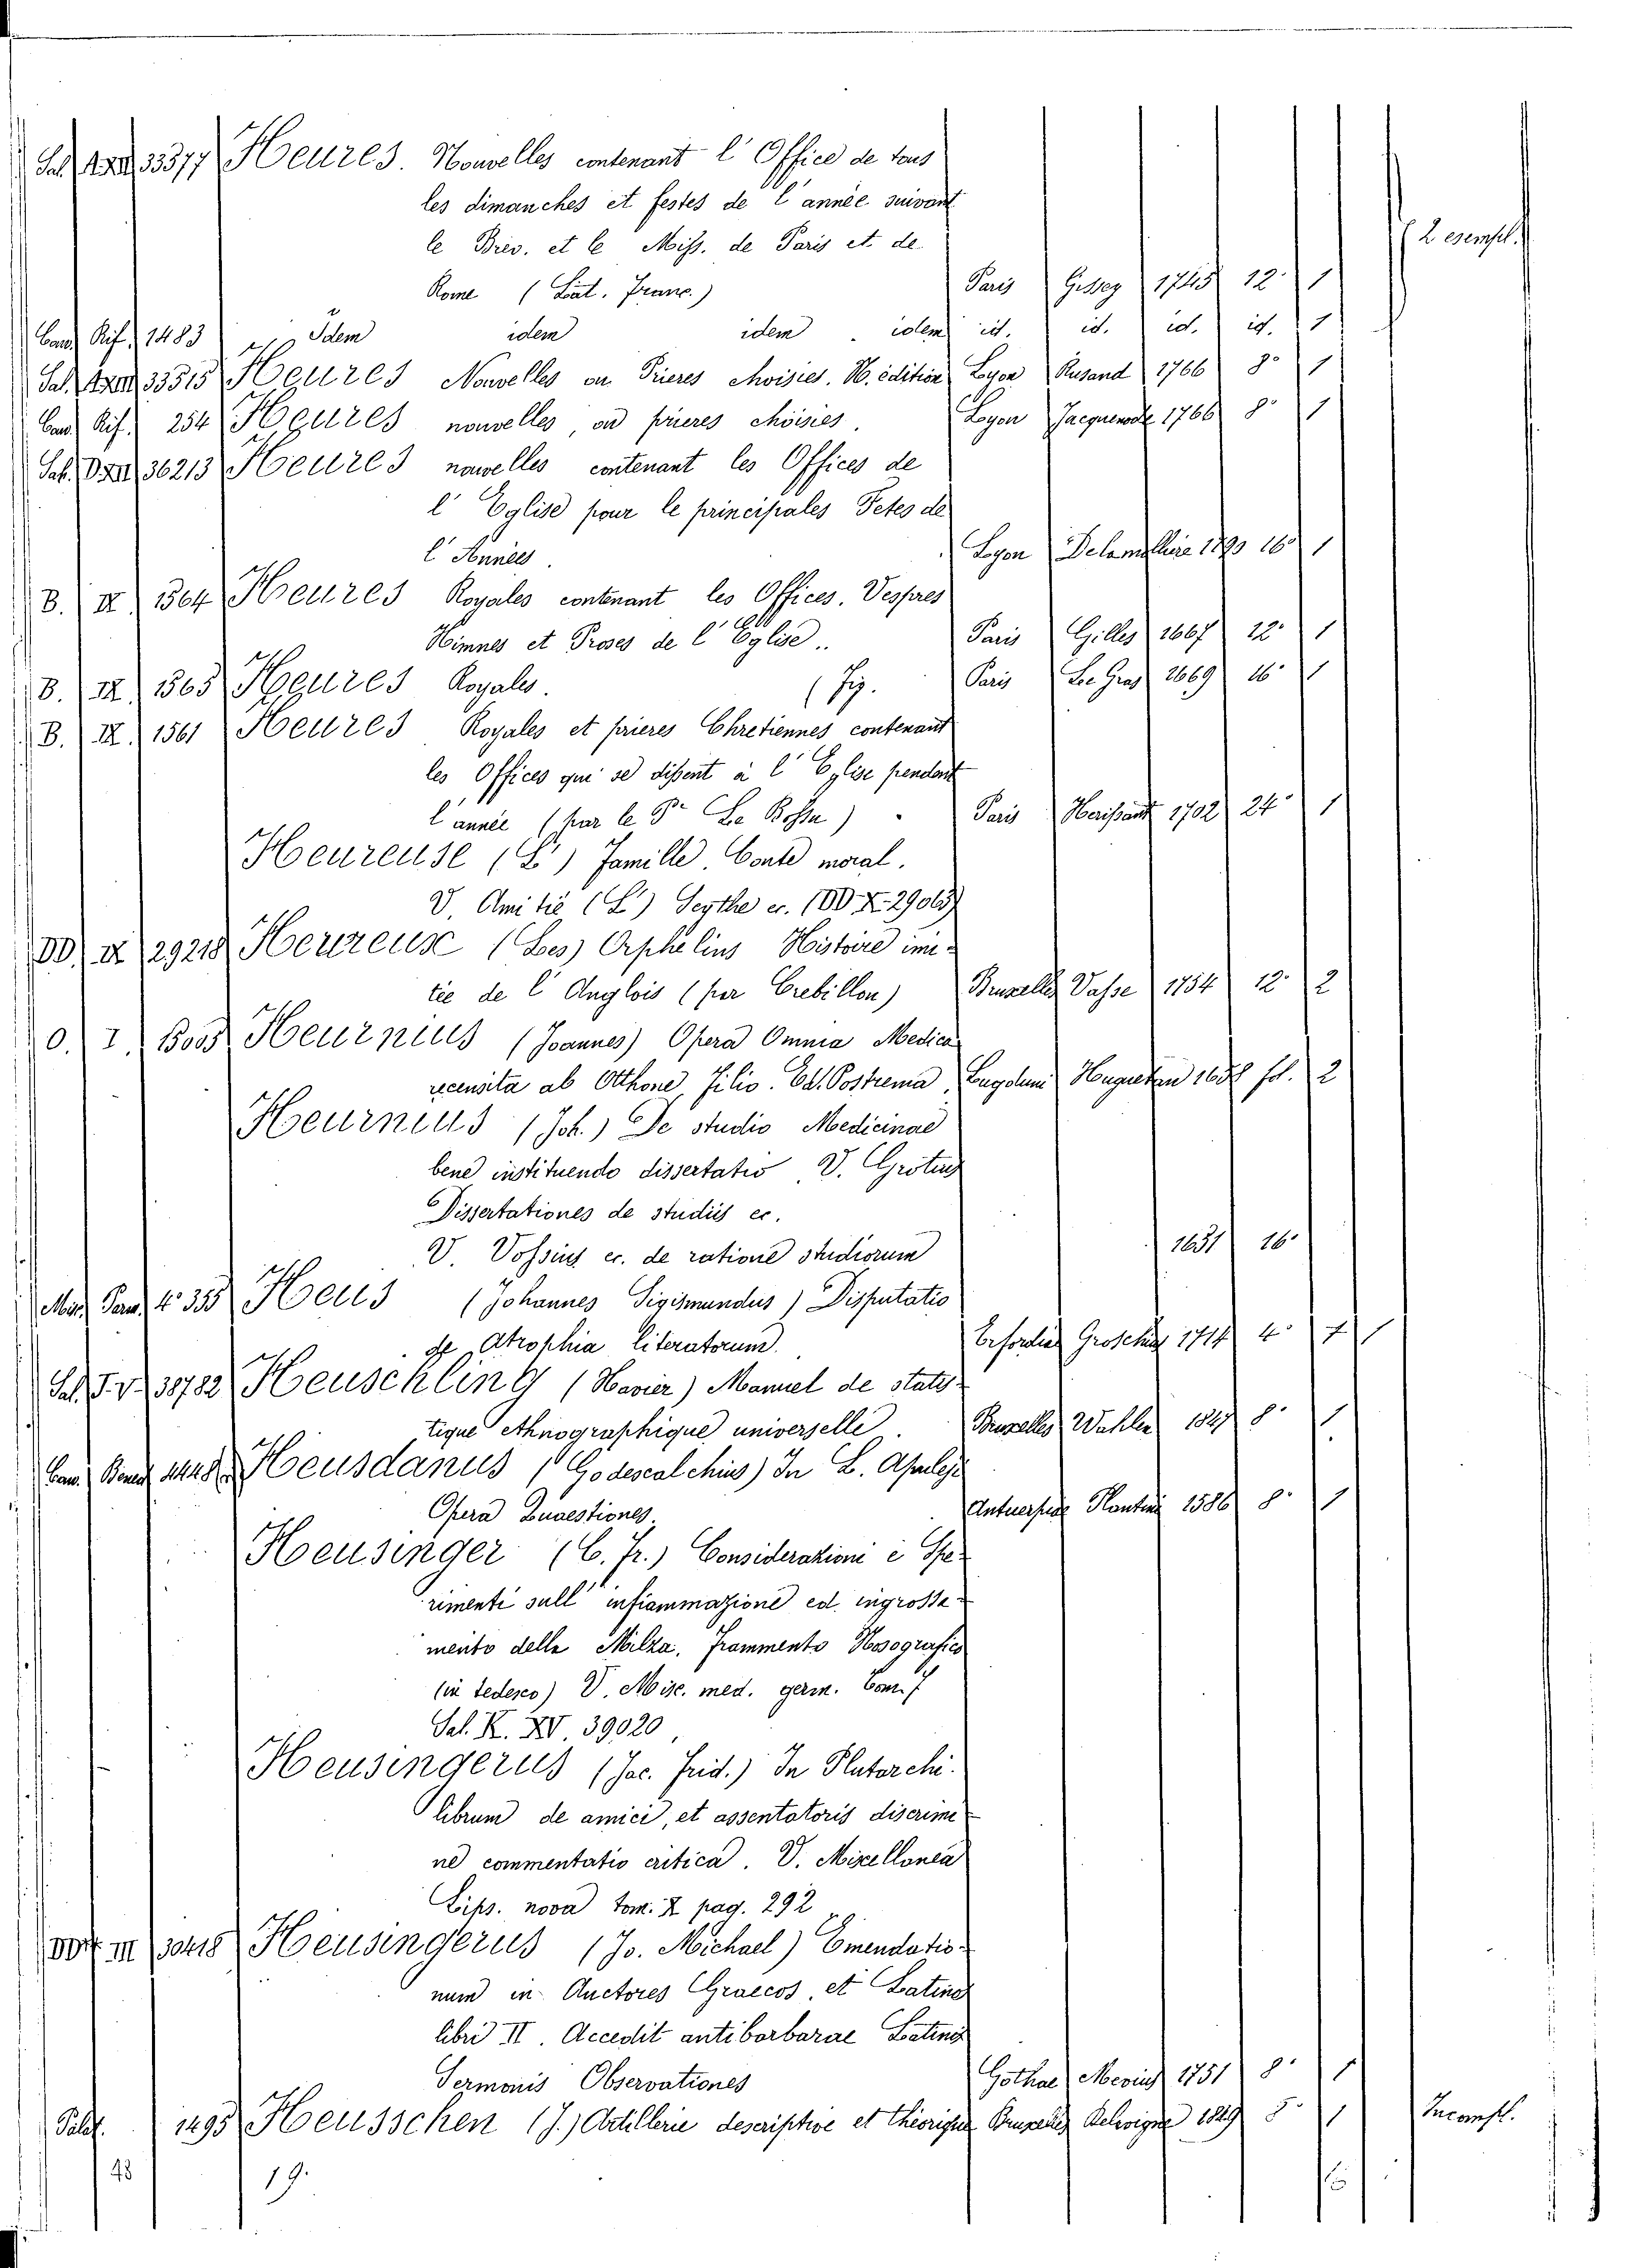 33377 Heures. Nouvelles contenant l'Office de tous
les dimanches et festes de l'année suivant
le Brev. et le Miss. de Paris et de
2 esempl.
Rome (Lat. Franc.) Paris Gissey 1745 12° 1
Can. Rif. 1483 Idem idem idem idem id. id. id. id. 1
33515 Heures Nouvelles ou Prieres choisies. N. édition Lyon Rusand 1766 8° 1
Can. Rif. 254 Heures nouvelles, ou prieres choisies. Lyon Jacquenode 1766 8° 1
36213 Heures nouvelles contenant les Offices de
l'Eglise pour le principales Fetes de
l'Années. Lyon 16° 1
B. II 1564 Heures Royales contenant les Offices. Vespres
Himnes et Proses de l'Eglise.. Paris Gilles 1667 12° 1
B. II. 1565 Heures Royales. (Fig. Paris Le Gras 1669 16° 1
B. II. 1561 Heures Royales et prieres Chretiennes contenant
les Offices qui se disent à l'Eglise pendant
l'année (par le Sr. Le Bossu) Paris Herissant 1702 24° 1
Heureuse (L') Famille. Conte moral.
V. Amitié (L') Scythe ec. (DD. X. 29063)
DD. IX 29218 Heureuse (Les) Orphelins Histoire imi-
tée de l'Anglois (par Crebillon) Bruxelles Vasse 1754 12° 2
O. I. Heurnius (Joannes) Opera Omnia Medica
recensita ab Otthone, Filio. Ed. Postrema, Lugduni Huguetan 1658 fol. 2
Heurnius (Joh.) De studio Medicinae
bene instituendo dissertatio V. Grotius
Dissertationes de studiis ec.
V. Vossius ec. de ratione studiorum 1651 16°
4° 355 Heus (Johannes Sigismundus) Disputatio
de Atrophia literatorum. Erfordiae Groschius 1714 4° 1
38782 Heuschling (Xavier) Manuel de statis-
tique ethnographique universelle. Bruxelles Wahlen 1847 8° 1
Heusdanus (Godescalchius) In L. Apuleji
Opera Quaestiones. Antuerpiae Plantini 1586 8° 1
Heusinger (C. Fr.) Considerazioni e Spe-
rimenti sull'infiammazione ed ingrossa-
mento della Milza. Frammento Nosografico
(in tedesco) V. Misc. med. germ. tom. 7
Sal. K. XV. 39020
Heusingerus (Jac. Frid.) In Plutarchi
librum de amici, et assentatoris discrimi-
ne commentatio critica. V. Miscellanea
Lips. nova tom. X pag. 292
III 30418 Heusingerus (Jo. Michael) Emendatio-
num in Auctores Graecos, et Latinos
libri II. Accedit antibarbarae Latini
Sermonis Observationes Gothae Mevius 1751 8° 1
Palat. 1495 Heusschen (J.) Artillerie descriptive et théorique Bruxelles 1849 8° 1 Incompl.
48 19.